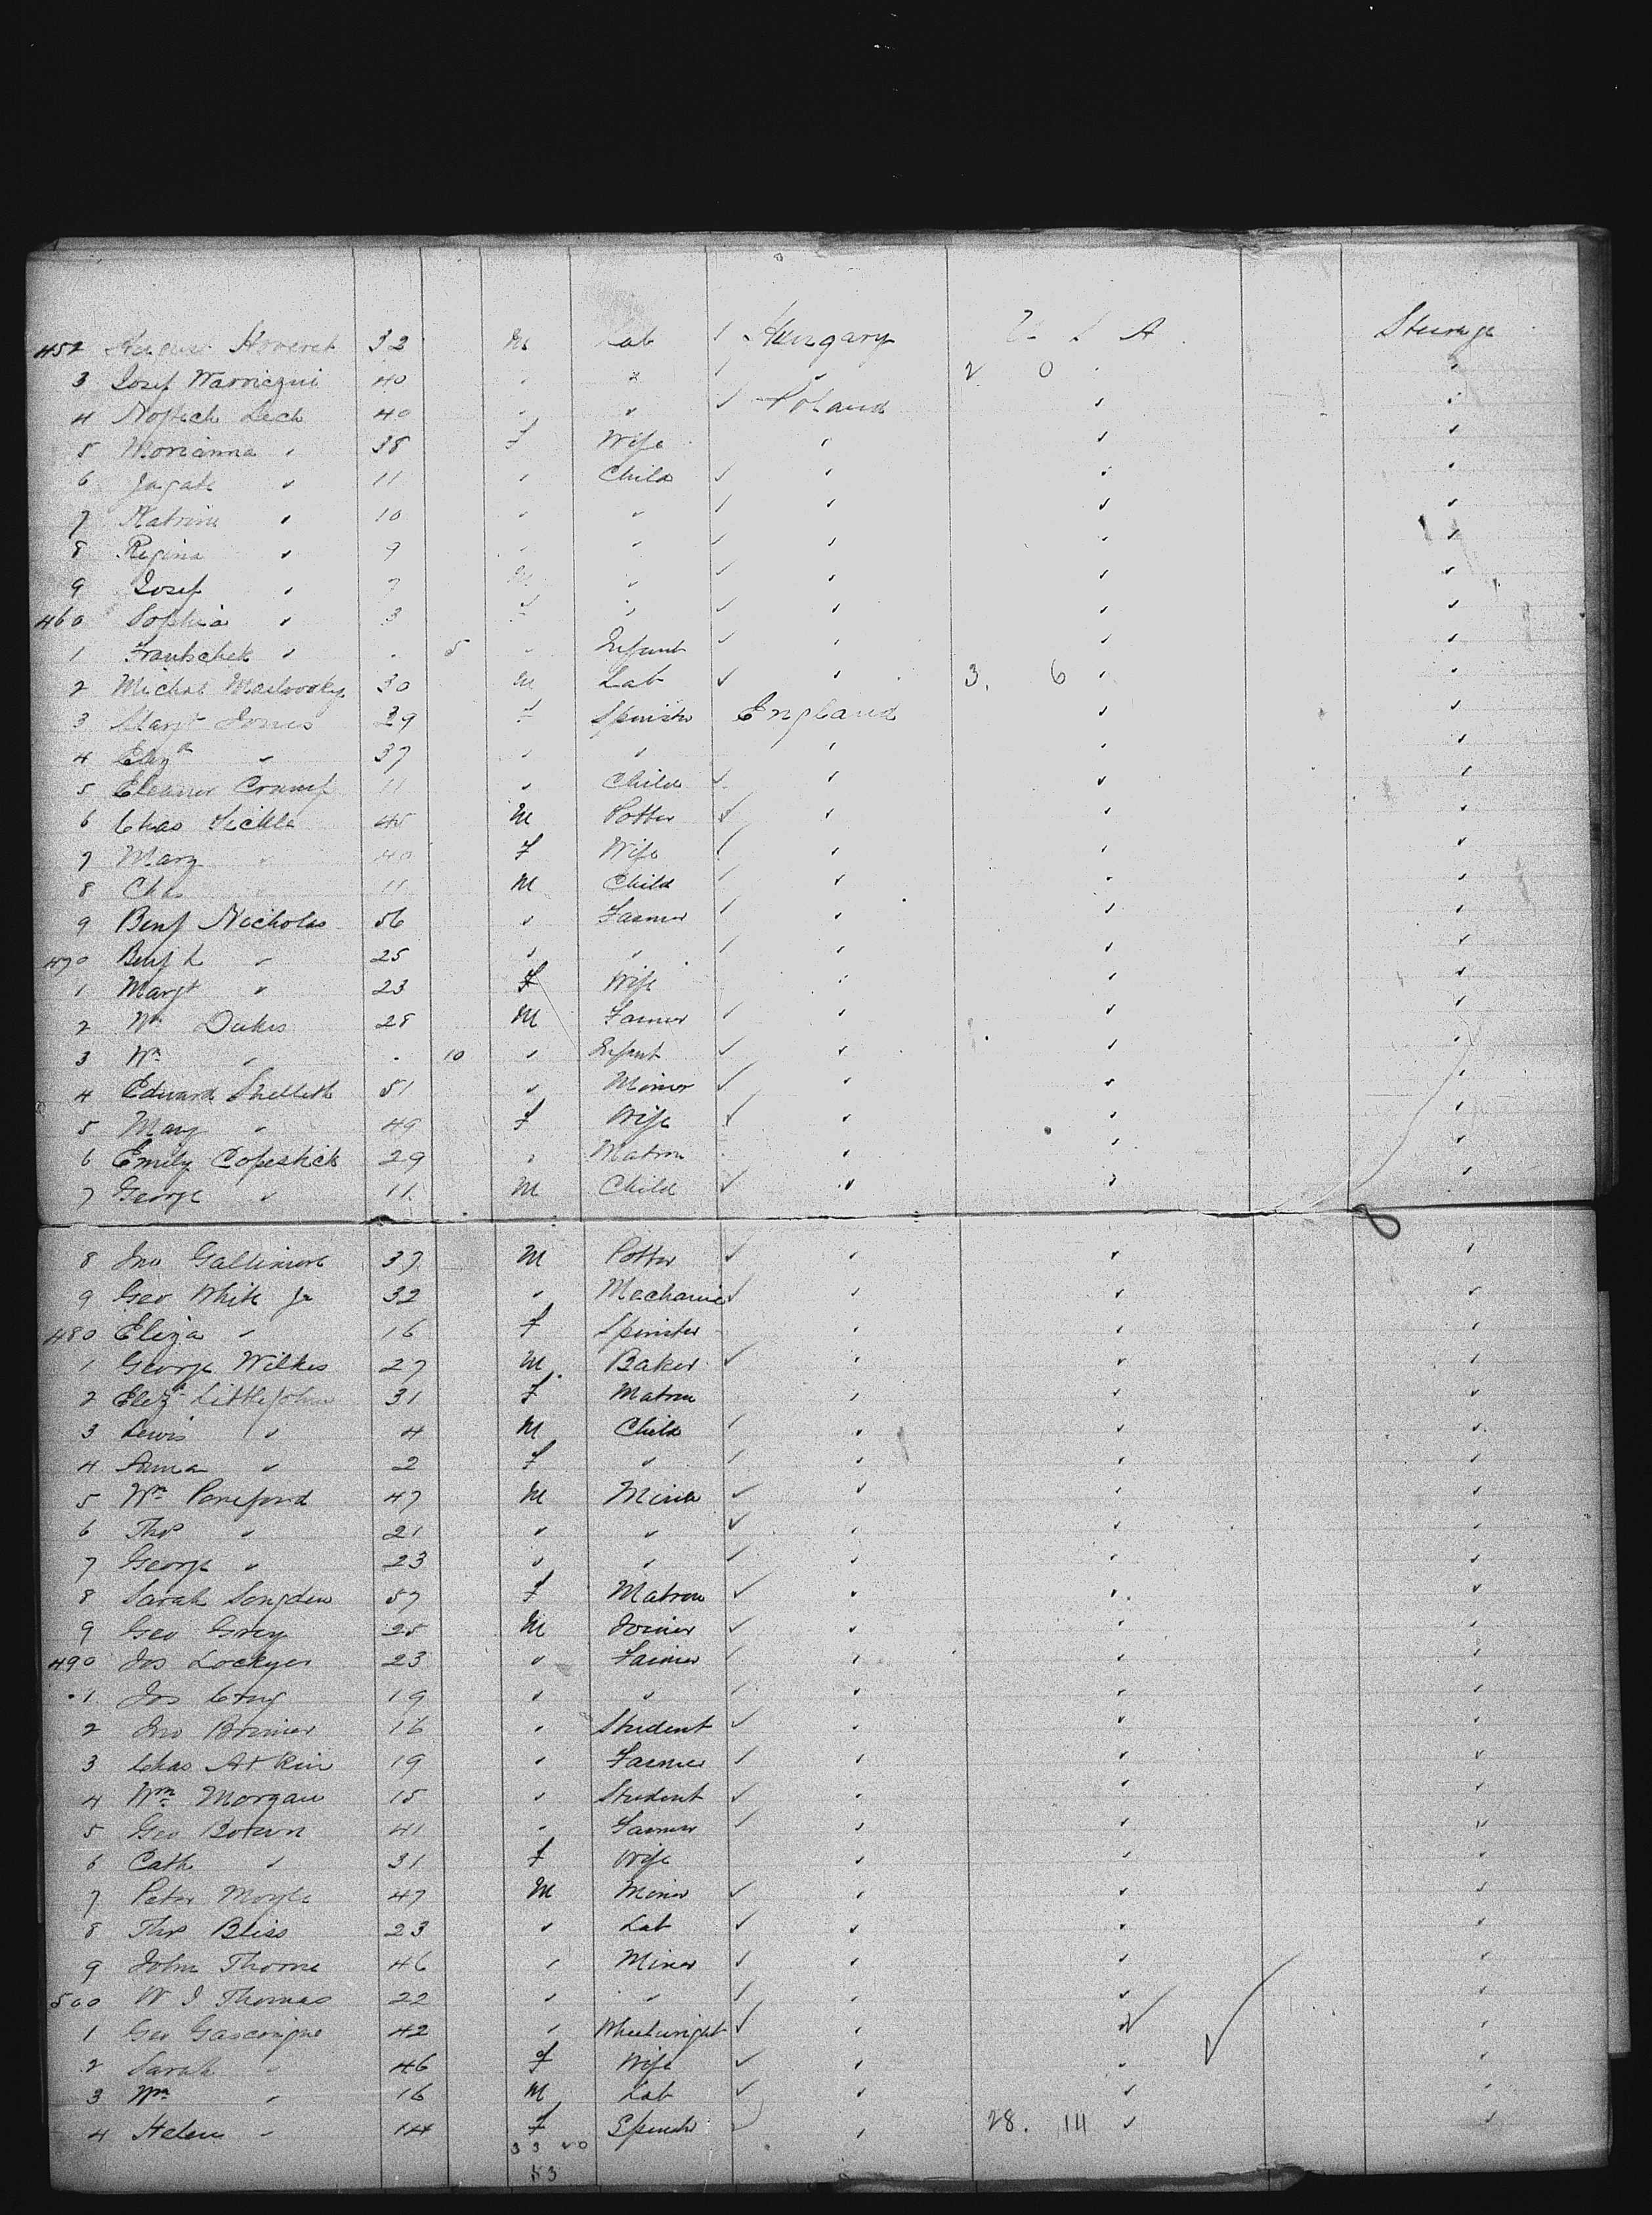 452 32 M Lab Hungary U S A Steerage
3 Josef Warniczui 40 2 0
4 Lech 40 Poland
5 Morianna " 38 F Wife
6 Jagate " 11 " Child
7 Katrina " 10
8 Regina " 9
9 Josef " 7 M
460 Sophia " 3 F
1 Frantschek " . 5 Infant
2 Michal 30 M Lab 3. 6
3 Margt Jones 29 F Spinster England
4 Eliz a " 37
5 Eleanor Crump 11 " Child
6 Chas Sickle 45 M Potter
7 Mary " 40 F Wife
8 Chs " 11 M Child
9 Benj Nicholas 56 " Farmer
470 Benj L " 25
1 Margt " 23 F Wife
2 Wm Dukes 28 M Farmer
3 Wm " . 10 " Infant
4 Edward 51 " Miner
5 Mary " 49 F Wife
6 Emily Copestick 29 " Matron
7 George " 11 M Child
8
8 Jno Gallimore 37 M Potter
9 Geo White Jr 32 " Mechanic
480 Eliza " 16 F Spinster
1 George Wilkes 27 M Baker
2 Eliza Littlejohn 31 F Matron
3 Lewis " 4 M Child
4 Anna " 2 F "
5 Wm Ponsford 47 M Miner
6 Thos " 21 " "
7 George " 23 " "
8 Sarah Songden 57 F Matron
9 Geo Grey 25 M Joiner
490 Jos Lockyer 23 " Farmer
1 Jos 19 " "
2 Jno 16 " Student
3 Chas Atkin 19 " Farmer
4 Wm Morgan 15 " Student
5 Geo Botwn 41 " Farmer
6 Cath " 31 F Wife
7 Peter Moyle 47 M Miner
8 Thos Bliss 23 " Lab
9 John Thorne 46 " Miner
500 W J Thomas 22 " "
1 Geo Gascoigne 42 " Wheelwright
2 Sarah " 46 F Wife
3 Wm " 16 M Lab
4 Helen " 14 F Spinster 28. 111
33 20
53